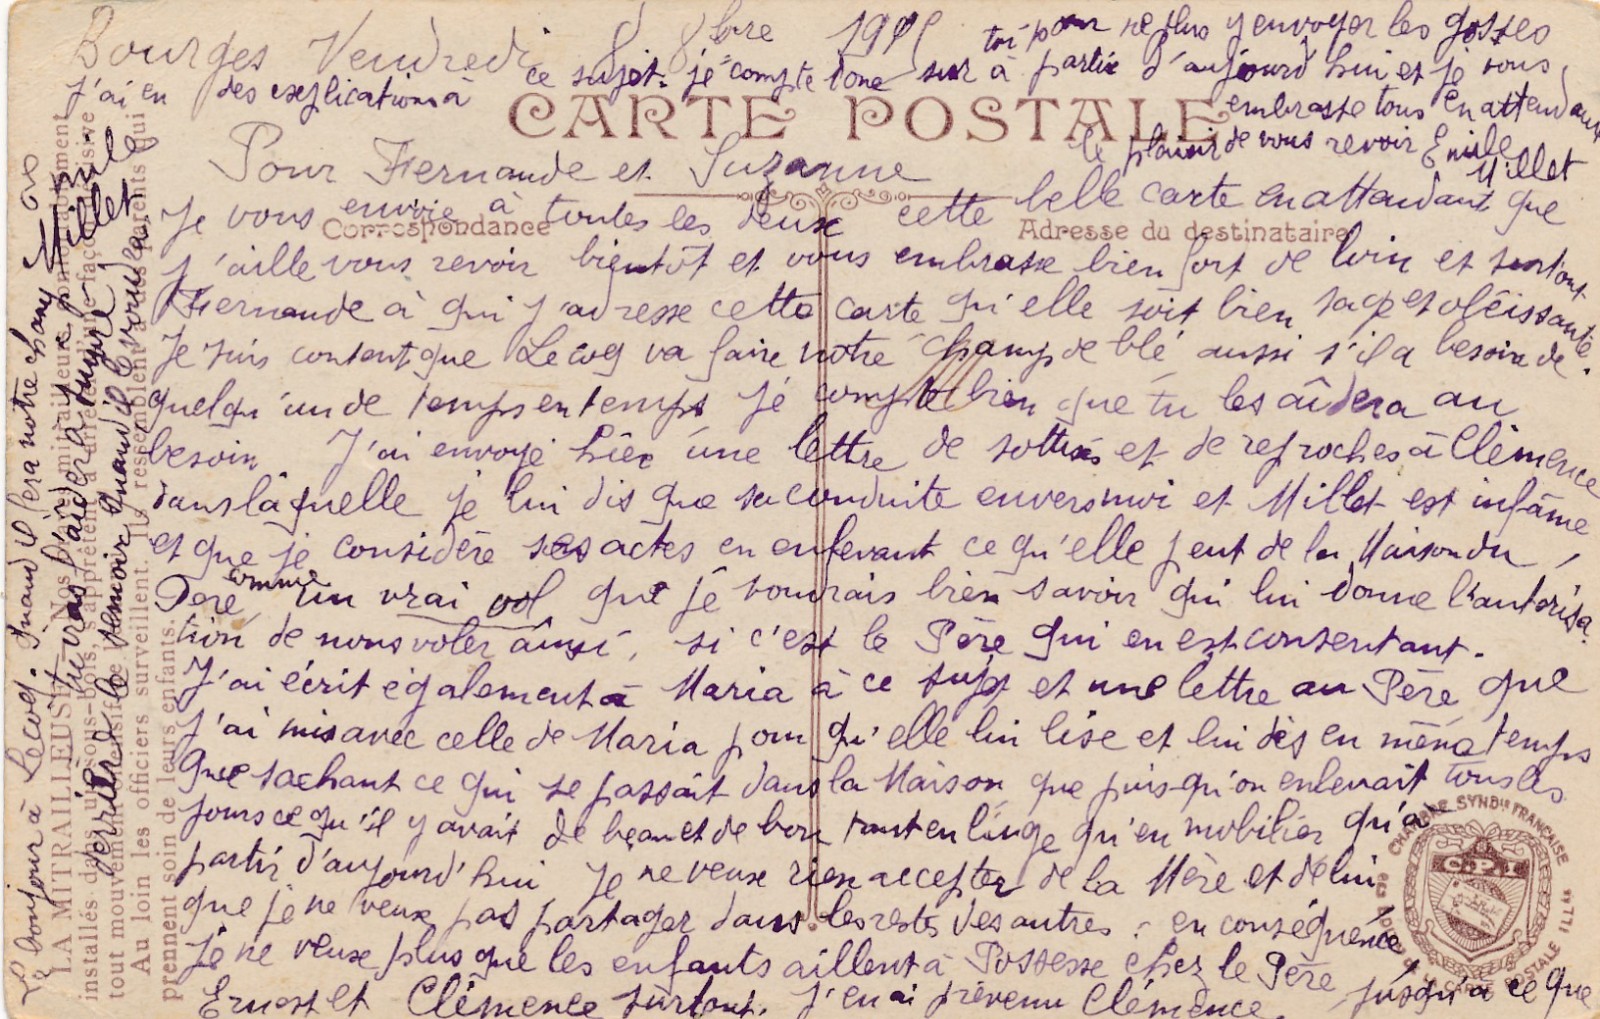 Bourges Vendredi 8 8bre 1915
CARTE POSTALE
Correspondance
Adresse du destinataire
Pour Fernande et Suzanne
Je vous envoie à toutes les deux cette belle carte en attendant que
j'aille vous revoir bientôt et vous embrasse bien fort de loin et surtout
Fernande à qui j'adresse cette carte qu'elle soit bien sage et obéissante
Je suis content que Lecoq va faire notre champ de blé aussi s'il a besoin de
quelqu'un de temps en temps je compte bien que tu les aîdera au
besoin J'ai envoyé hièr une lettre de sottises et de reproches à Clémence
dans làquelle je lui dis que sa conduite envers moi et Millet est infâme
et que je considère ses actes en enlevant ce qu'elle peut de la Maison du
Père comme un vrai vol que je voudrais bien savoir qui lui donne l'autorisa
tion de nous voler ainsi, si c'est le Père qui en est consentant.
J'ai écrit également à Maria à ce sujet et une lettre au Père que
j'ai mis avec celle de Maria pour qu'elle lui lise et lui dis en même temps
que sachant ce qui se passait dans la Maison que puis-qu'on enlevait tous les
jours ce qu'il y avait de beau et de bon tant en linge qu'en mobilier qu'à
partir d'aujourd'hui je ne veux rien accepter de la Mère et de lui
que je ne veux pas partager dans les restes des autres. en conséquence
je ne veux plus que les enfants aillent à Possesse chez le Père
Ernest et Clémence surtout. J'en ai prévenu Clémence jusqu'à ce que
j'ai en des explications à ce sujet. je compte donc sur toi pour ne plus y envoyer les gosses
à partir d'aujourd'hui et je vous
embrasse tous en attendant
le plaisir de vous revoir Emile
Millet
Le bonjour à Lecoq. Quand il fera notre champ
tu iras l'aider à
le Quand il
LA MITRAILLEUSE. Nos mitrailleuses
installés dans un sous-bois, s'apprêtent à arrêter d'une façon
tout mouvement offensif
Au loin les officiers surveillent. Ils ressemblent à des parents qui
prennent soin de leurs enfants.
CHAMBRE SYNDle FRANÇAISE
CARTE POSTALE ILLtrée